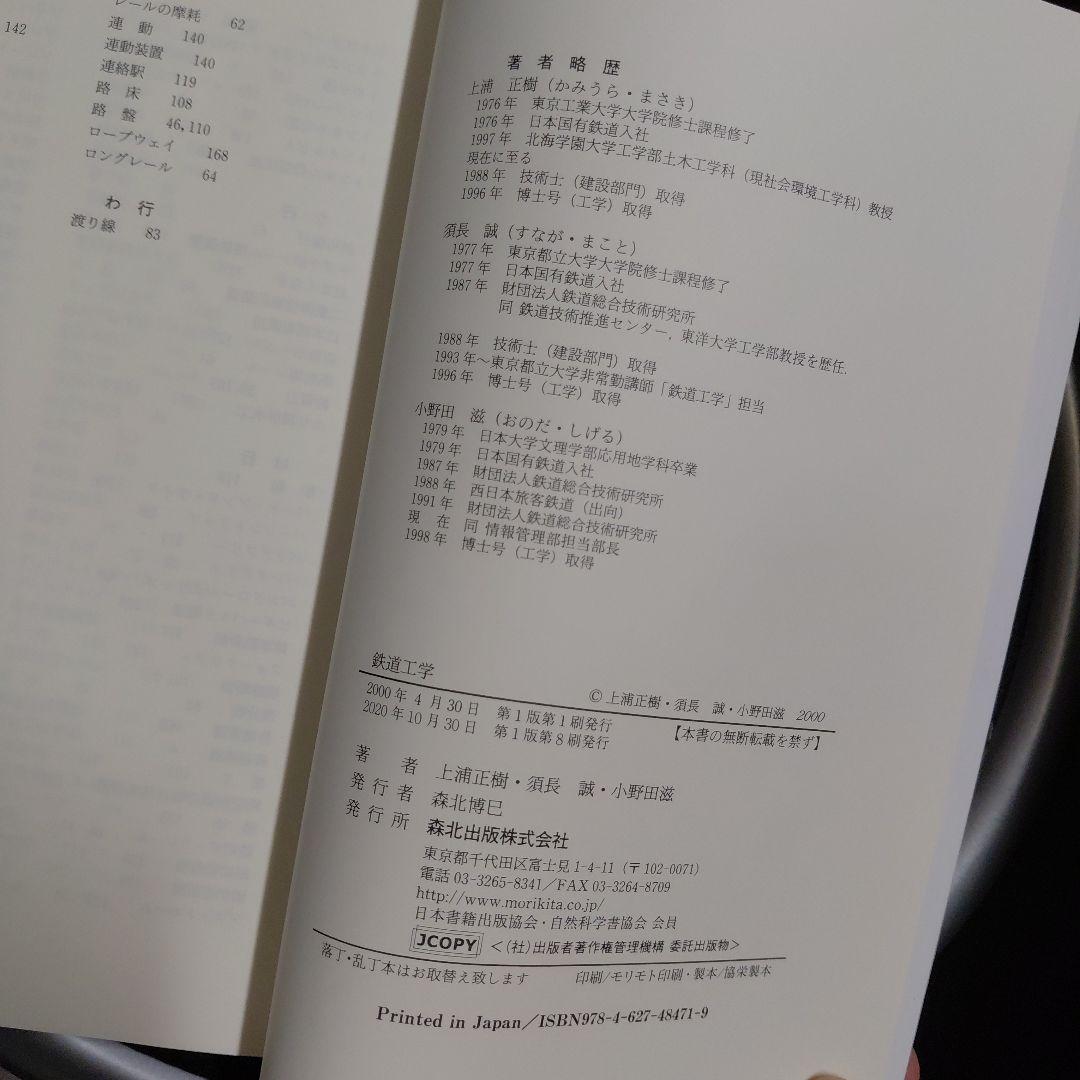 142
レールの摩耗 62
連動 140
連動装置 140
連絡駅 119
路床 108
路盤 46,110
ロープウェイ 168
ロングレール 64
わ行
渡り線 83
著者略歴
上浦 正樹（かみうら・まさき）
1976年 東京工業大学大学院修士課程修了
1976年 日本国有鉄道入社
1997年 北海学園大学工学部土木工学科（現社会環境工学科）教授
現在に至る
1988年 技術士（建設部門）取得
1996年 博士号（工学）取得
須長 誠（すなが・まこと）
1977年 東京都立大学大学院修士課程修了
1977年 日本国有鉄道入社
1987年 財団法人鉄道総合技術研究所
同 鉄道技術推進センター，東洋大学工学部教授を歴任.
1988年 技術士（建設部門）取得
1993年〜東京都立大学非常勤講師「鉄道工学」担当
1996年 博士号（工学）取得
小野田 滋（おのだ・しげる）
1979年 日本大学文理学部応用地学科卒業
1979年 日本国有鉄道入社
1987年 財団法人鉄道総合技術研究所
1988年 西日本旅客鉄道（出向）
1991年 財団法人鉄道総合技術研究所
現在 同 情報管理部担当部長
1998年 博士号（工学）取得
鉄道工学
© 上浦正樹・須長 誠・小野田滋 2000
2000年4月30日 第1版第1刷発行
【本書の無断転載を禁ず】
2020年10月30日 第1版第8刷発行
著者 上浦正樹・須長 誠・小野田滋
発行者 森北博巳
発行所 森北出版株式会社
東京都千代田区富士見1-4-11（〒102-0071）
電話 03-3265-8341／FAX 03-3264-8709
http://www.morikita.co.jp/
日本書籍出版協会・自然科学書協会 会員
JCOPY ＜（社）出版者著作権管理機構 委託出版物＞
落丁・乱丁本はお取替え致します 印刷/モリモト印刷・製本/協栄製本
Printed in Japan／ISBN978-4-627-48471-9